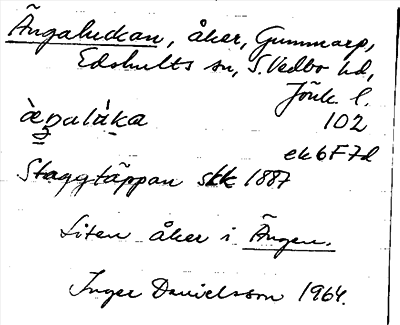 Ängaluckan, åker, Gummarp,
Edshults sn, S. Vedbo hd,
Jönk l.
102
ek 6F7d
Staggtäppan skk 1887
Liten åker i Ängen.
Inger Danielsson 1964.